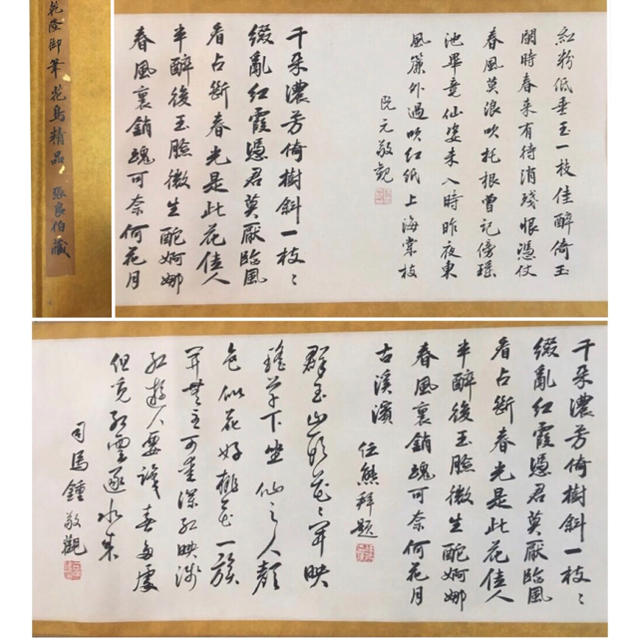 乾隆御筆花鳥精品 張良伯藏
紅粉低垂玉一枝佳醉倚玉
闌時春来有待消殘恨憑仗
春風莫浪吹托根曾記傍瑶
池畢竟仙姿未入時昨夜東
風簾外過吹紅紙上海棠枝
阮元敬觀
千朶濃芳倚樹斜一枝〻
綴亂紅霞憑君莫厭臨風
看占斷春光是此花佳人
半醉後玉臉微生酡婀娜
春風裏銷魂可奈何花月
千朶濃芳倚樹斜一枝〻
綴亂紅霞憑君莫厭臨風
看占斷春光是此花佳人
半醉後玉臉微生酡婀娜
春風裏銷魂可奈何花月
古溪濱 任熊拜題
群玉山頭花〻開映
瑶草下坐仙之人顏
色似花好桃花一簇
開無主可愛深紅映淺
紅遊人要識春多處
但見紅雲逐水来
司馬鍾敬觀